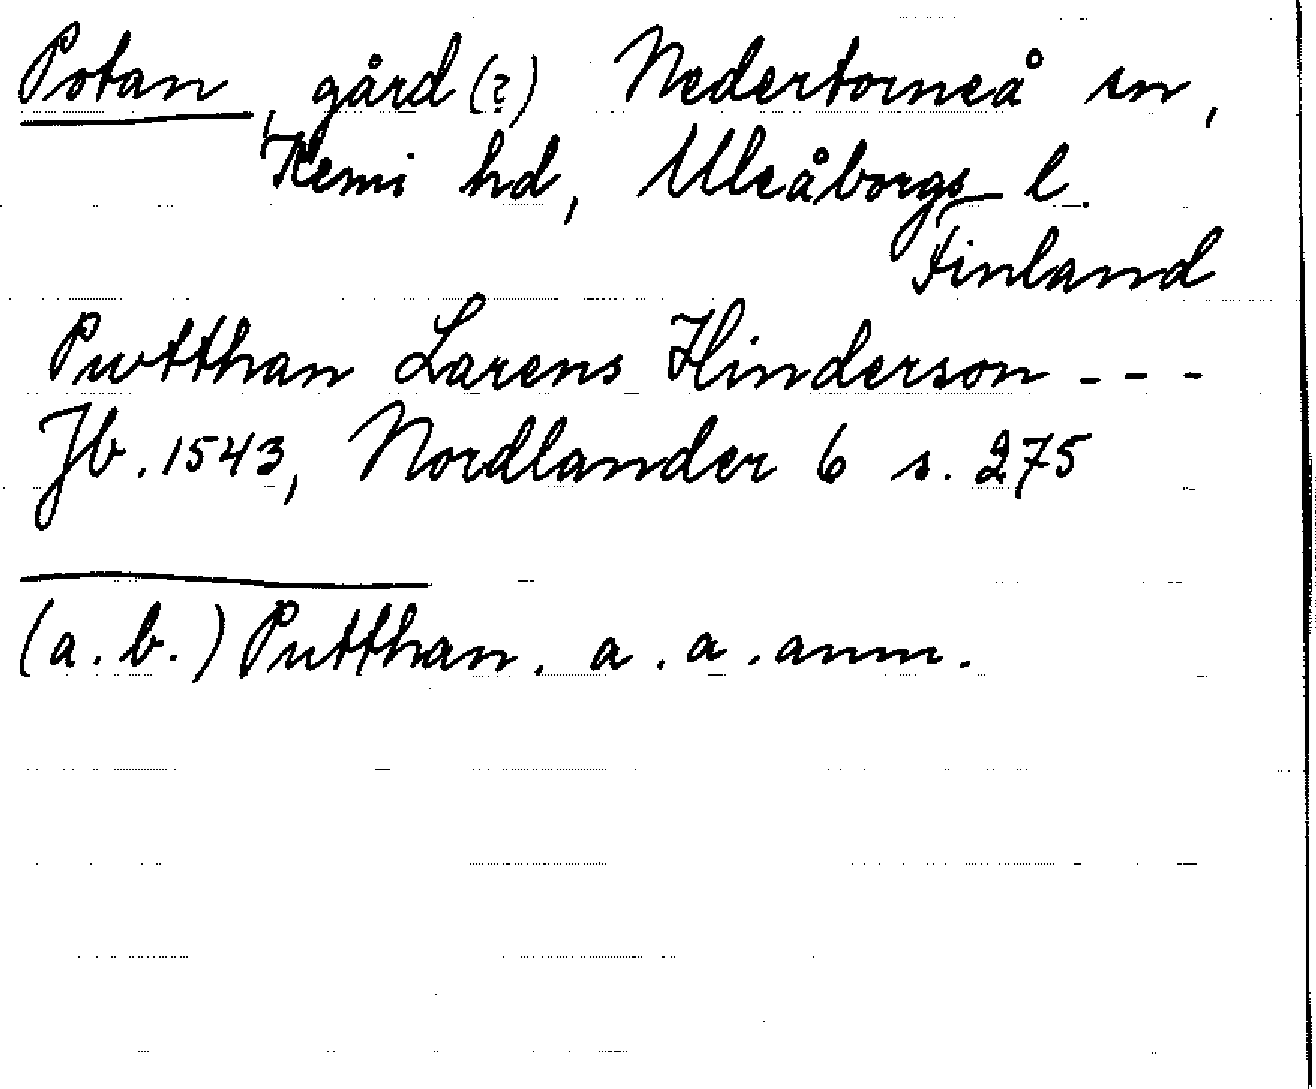 Potan, gård (?) Nedertorneå sn,
Kemi hd, Uleåborgs l.
Finland
Pwtthan Larens Hinderson - - -
Jb. 1543, Nordlander 6 s. 275
(a. b.) Putthan. a. a. anm.